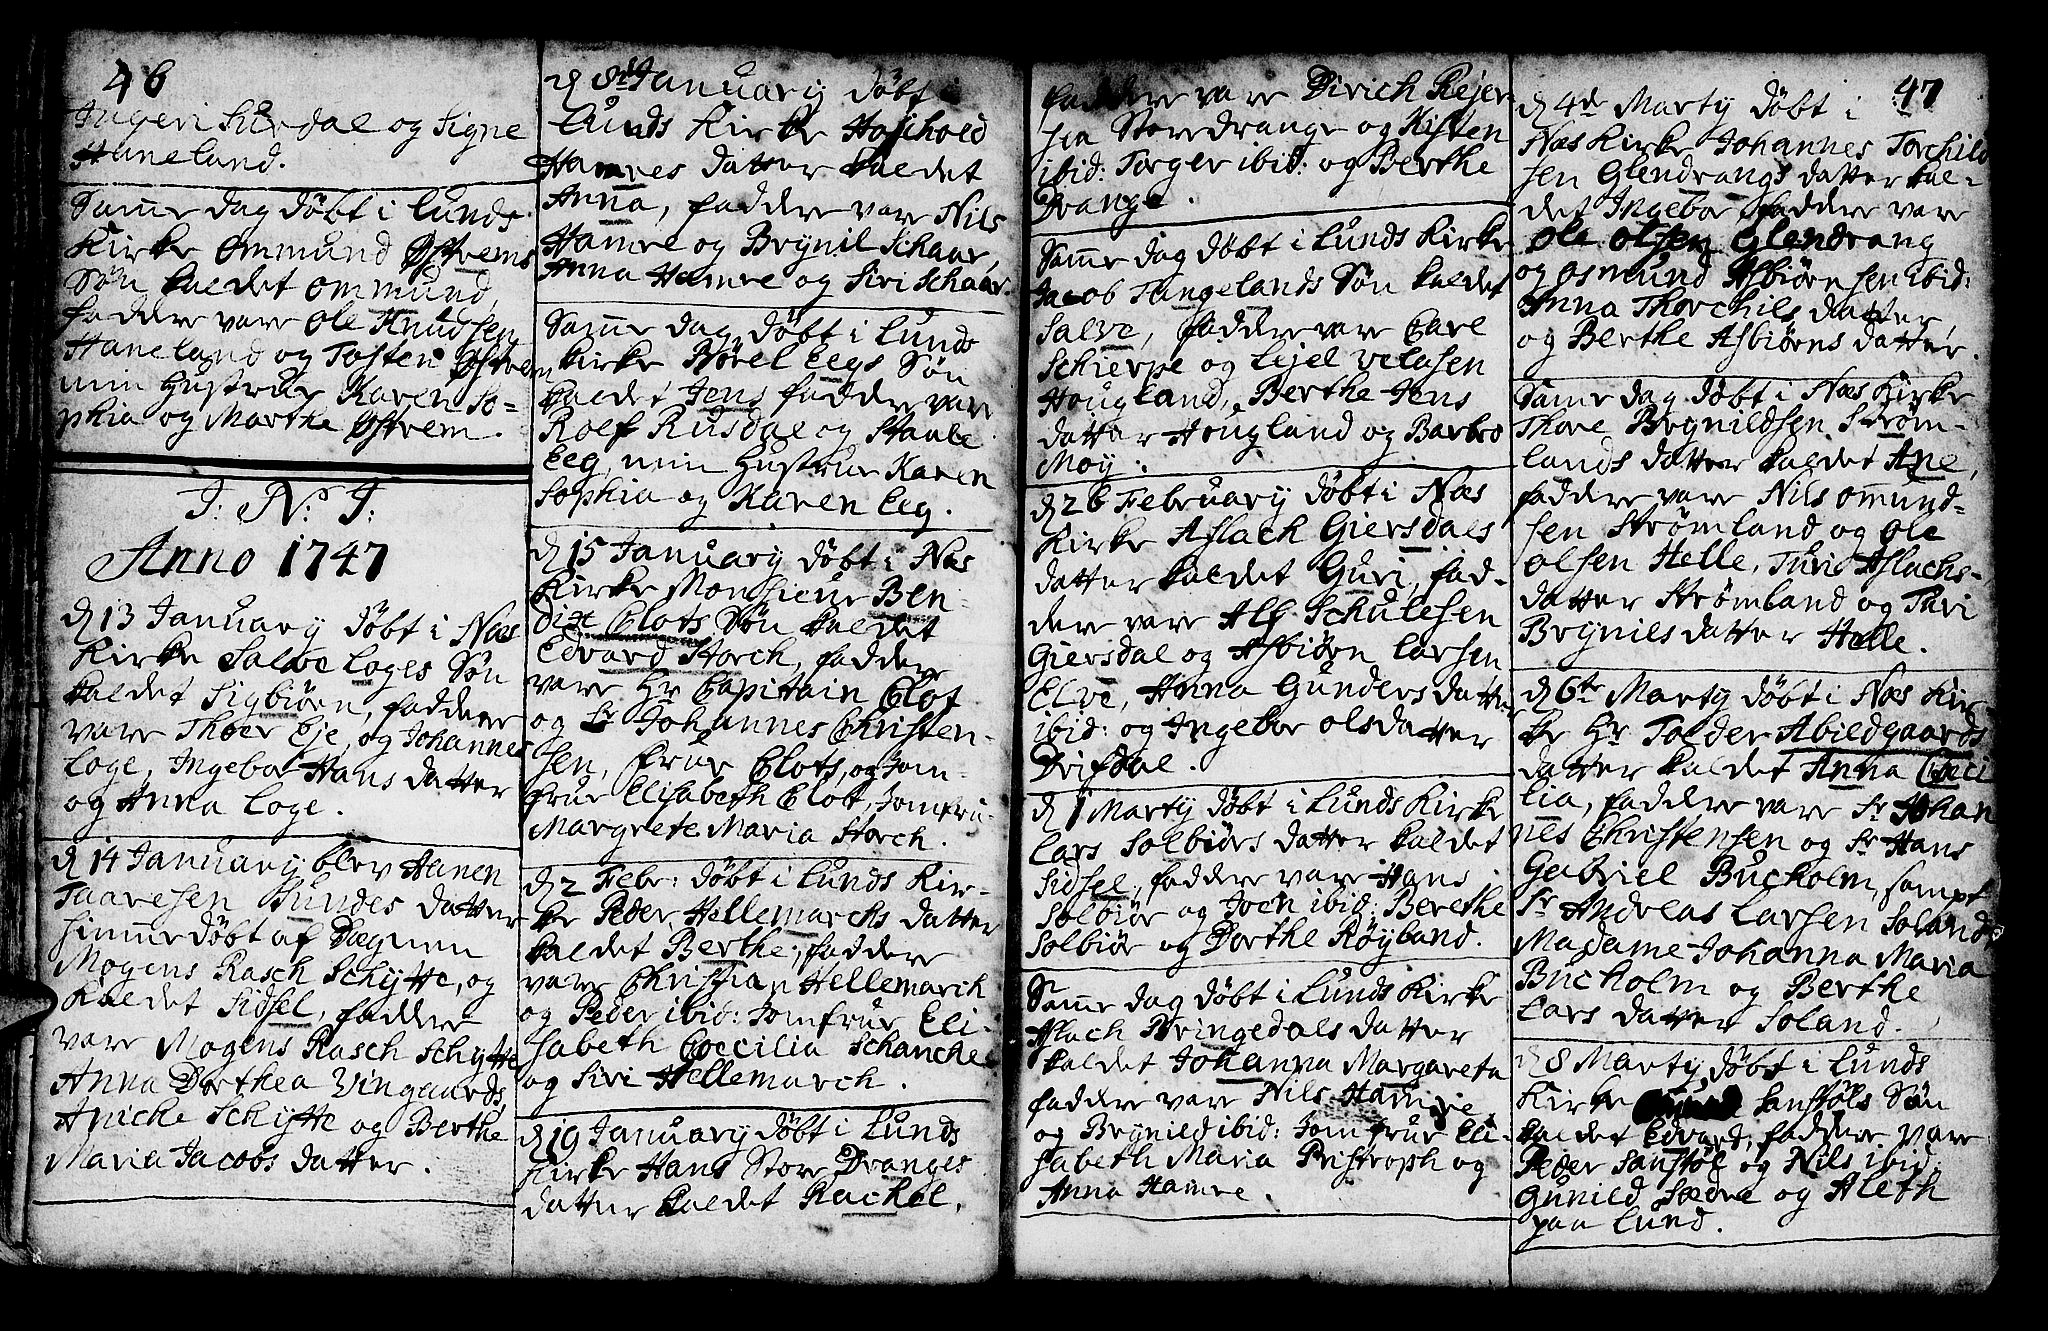 46
Ingeri Surdal og Signe
Haneland.
Samme dag døbt i Lunds
Kirke Ommund Østrems
Søn kaldet Ommund,
faddere vare Ole Knudsen
Haneland og Tosten Østrem
min Hustrue Karen So-
phia og Marthe Østrem.
J. N. J.
Anno 1747
d 13 January døbt i Næs
Kirke Salve Loges Søn
kaldet Sigbiørn, faddere
vare Thoer Eje, og Johannes
Loge, Ingebor Hans datter
og Anna Loge.
d 14 January blev Hanen
Taaresen Sundes datter
himme døbt af Degnen
Mogens Rasch Schytte, og
kaldet Sidsel, faddere
vare Mogens Rasch Schytte
Anna Dorthea Vingaards,
Anicke Schytte og Berthe
Maria Jacobs datter.
d 8d January døbt i
Lunds Kirke Hoschold
Hamres datter kaldet
Anna, faddere vare Nils
Hamre og Brynil Schaar,
Anna Hamre og Siri Schaar.
Samme dag døbt i Lunds
Kirke Norel Eegs Søn
kaldet Jens faddere vare
Roef Rusdal og Staale
Eeg, min Hustrue Karen
Sophia og Karen Eeg.
d 15 January døbt i Næs
Kirke Monsieur Ben-
dixt Clots Søn kaldet
Edvard Storch, faddere
vare Hr Capitain Clot
og Sr Johannes Christen-
sen, frue Clots, og Jom-
frue Elisabeth Clot, Jomfru
Margrete Maria Storch.
d 2 Febr: døbt i Lunds Kir-
ke Peder Hellemarchs datter
kaldet Berthe, faddere
vare Christian Hellemarch
og Peder ibid: Jomfrue Eli-
sabeth Coecilia Schanche
og Siri Hellemarch.
d 19 January døbt i Lunds
Kirke Hans Store Dranges
datter kaldet Rachel,
faddere vare Dirich Rejer
sen Storedrange og Kisten
ibid: Torger ibid: og Berthe
Drange.
Samme dag døbt i Lunds Kirke
Jacob Tangelands Søn kaldet
Salve, faddere vare Carl
Schierpe og Lejel Velasen
Hougland, Berthe Jens
datter Hougland og Barbro
Moy.
d 26 February døbt i Næs
Kirke Aslach Giersdals
datter kaldet Guri, fad-
dere vare Alf Schulesen
Giersdal og Asbiørn Larsen
Elve, Anna Gunders datter
ibid: og Ingebor olsdatter
Drifdal.
d 1 Marty døbt i Lunds Kirke
Lars Solbiørs datter kaldet
Sidsel, faddere vare Hans
Solbiør og Joen ibid: Berethe
Solbiør og Dorthe Røyland.
Samme dag døbt i Lunds Kirke
Aslach Bringedals datter
kaldet Johanna Margareta
faddere vare Nils Hamre,
og Brynild ibid: Jomfrue Eli-
sabeth Maria Pristroph og
Anna Hamre.
47
d 4de Marty døbt i
Næs Kirke Johannes Torchild
sen Glendrangs datter kal-
det Ingebor faddere vare
Ole Olsen Glendrang
og Osmund Asbiørnsen ibid:
Anna Thorchils datter,
og Berthe Asbiørns datter.
Samme dag døbt i Næs Kirke
Thore Brynildsen Strøm-
lands datter kaldet Ane,
faddere vare Nils Ommund-
sen Strømland og Ole
Olsen Helle, Turid Aslachs-
datter Strømland og Turi
Brynils datter Helle.
d 6te Marty døbt i Næs Kir-
ke Hr Tolder Abildgaards
datter kaldet Anna Ceci
lia, faddere vare Sr Johan
nes Christensen og Sr Hans
Gabriel Bucholm, sampt
Sr Andreas Larsen Soland
Madame Johanna Maria
Bucholm og Berthe
Lars datter Soland.
d 8 Marty døbt i Lunds
Kirke Sanstøls Søn
kaldet Edvard, faddere vare
Peder Sanstøl og Nils ibid.
Gunild Sædre og Aleth
paa Lund.